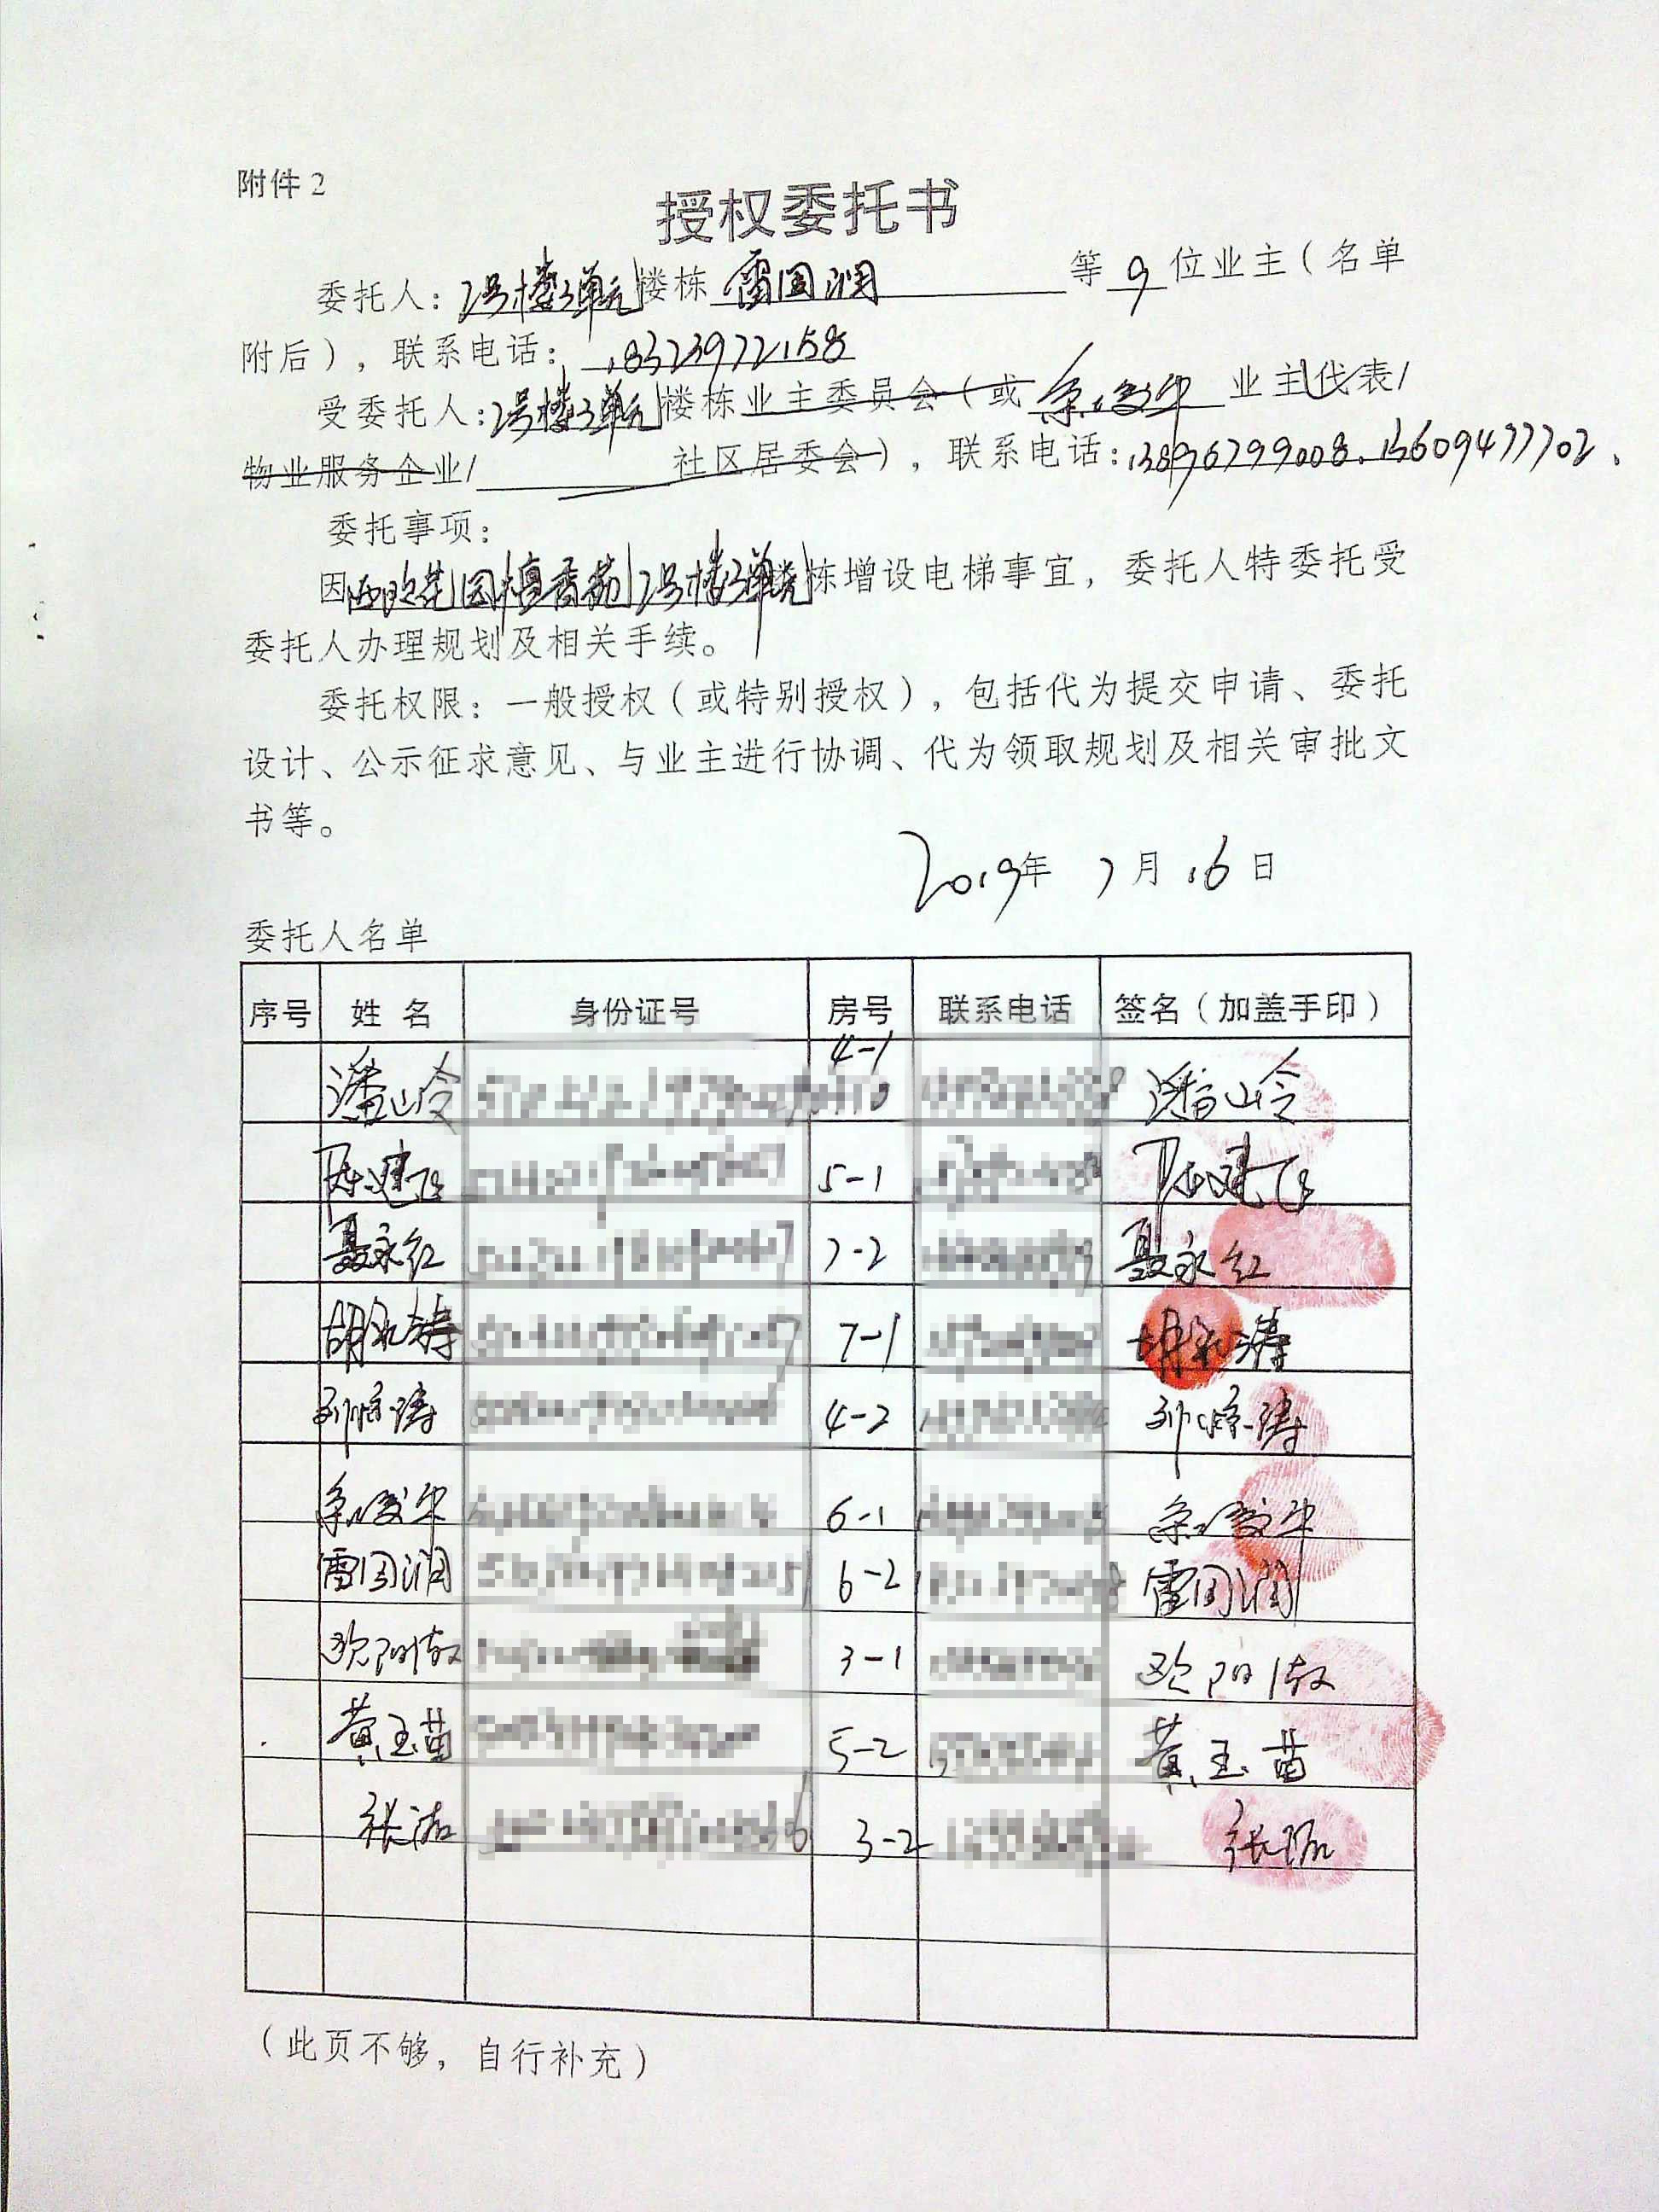 附件2
授权委托书
委托人：2号楼3单元楼栋 雷国润 等 9 位业主（名单
附后），联系电话：18323972158
受委托人：2号楼3单元楼栋业主委员会（或 余俊华 业主代表/
物业服务企业/ 社区居委会），联系电话：13896799008、13609477702、
委托事项：
因 花园檀香苑2号楼3单元栋增设电梯事宜，委托人特委托受
委托人办理规划及相关手续。
委托权限：一般授权（或特别授权），包括代为提交申请、委托
设计、公示征求意见、与业主进行协调、代为领取规划及相关审批文
书等。
2019年 7月 16日
委托人名单
序号 姓 名 身份证号 房号 联系电话 签名（加盖手印）
潘山岭 4-1 潘山岭
陈建 5-1 陈建
聂永红 7-2 聂永红
胡永涛 7-1 胡永涛
涛 4-2 涛
余俊华 6-1 余俊华
雷国润 6-2 雷国润
欧阳 3-1 欧阳
黄玉苗 5-2 黄玉苗
张 3-2 张
（此页不够，自行补充）